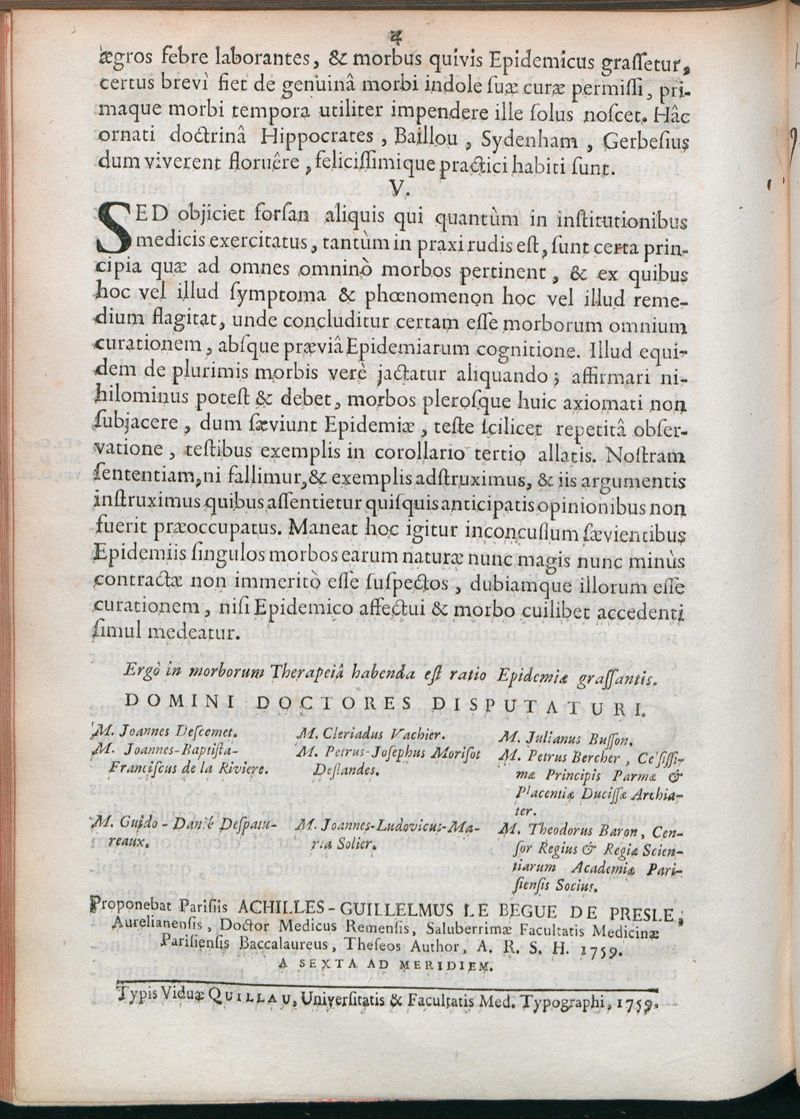 4
ægros febre laborantes, & morbus quivis Epidemicus graſſetur,
certus brevì fiet de genuinâ morbi indole ſuæ curæ permiſſi, pri-
maque morbi tempora utiliter impendere ille ſolus noſcet. Hâc
ornati doctrinâ Hippocrates, Baillou, Sydenham, Gerbeſius
dum viverent floruêre, feliciſſimique practici habiti ſunt.
V.
SED objiciet forſan aliquis qui quantùm in inſtitutionibus
medicis exercitatus, tantùm in praxi rudis eſt, ſunt certa prin-
cipia quæ ad omnes omninò morbos pertinent, & ex quibus
hoc vel illud ſymptoma & phœnomenon hoc vel illud reme-
dium flagitat, unde concluditur certam eſſe morborum omnium
curationem, abſque præviâ Epidemiarum cognitione. Illud equi-
dem de plurimis morbis verè jactatur aliquando; affirmari ni-
hilominus poteſt & debet, morbos pleroſque huic axiomati non
ſubjacere, dum ſæviunt Epidemiæ, teſte ſcilicet repetitâ obſer-
vatione, teſtibus exemplis in corollario tertio allatis. Noſtram
ſententiam, ni fallimur, & exemplis adſtruximus, & iis argumentis
inſtruximus quibus aſſentietur quiſquis anticipatis opinionibus non
fuerit præoccupatus. Maneat hoc igitur inconcuſſum ſævientibus
Epidemiis ſingulos morbos earum naturæ nunc magis nunc minùs
contractæ non immeritò eſſe ſuſpectos, dubiamque illorum eſſe
curationem, niſi Epidemico affectui & morbo cuilibet accedenti
ſimul medeatur.
Ergò in morborum Therapeiâ habenda eſt ratio Epidemiæ graſſantis.
DOMINI DOCTORES DISPUTATURI.
M. Joannes Deſcemet.
M. Joannes-Baptiſta-
Franciſcus de la Riviere.
M. Guido-Danié Deſpatu-
reaux.
M. Cleriadus Vachier.
M. Petrus-Joſephus Moriſot
Deſlandes.
M. Joannes-Ludovicus-Ma-
ria Solier.
M. Julianus Buſſon.
M. Petrus Bercher, Celſiſſi-
mæ Principis Parmæ &
Placentiæ Duciſſæ Archia-
ter.
M. Theodorus Baron, Cen-
ſor Regius & Regiæ Scien-
tiarum Academiæ Pari-
ſienſis Socius.
Proponebat Pariſiis ACHILLES-GUILLELMUS LE BEGUE DE PRESLE,
Aurelianenſis, Doctor Medicus Remenſis, Saluberrimæ Facultatis Medicinæ
Pariſienſis Baccalaureus, Theſeos Author, A. R. S. H. 1759.
A SEXTA AD MERIDIEM.
Typis Viduæ QUILLAU, Univerſitatis & Facultatis Med. Typographi, 1759.